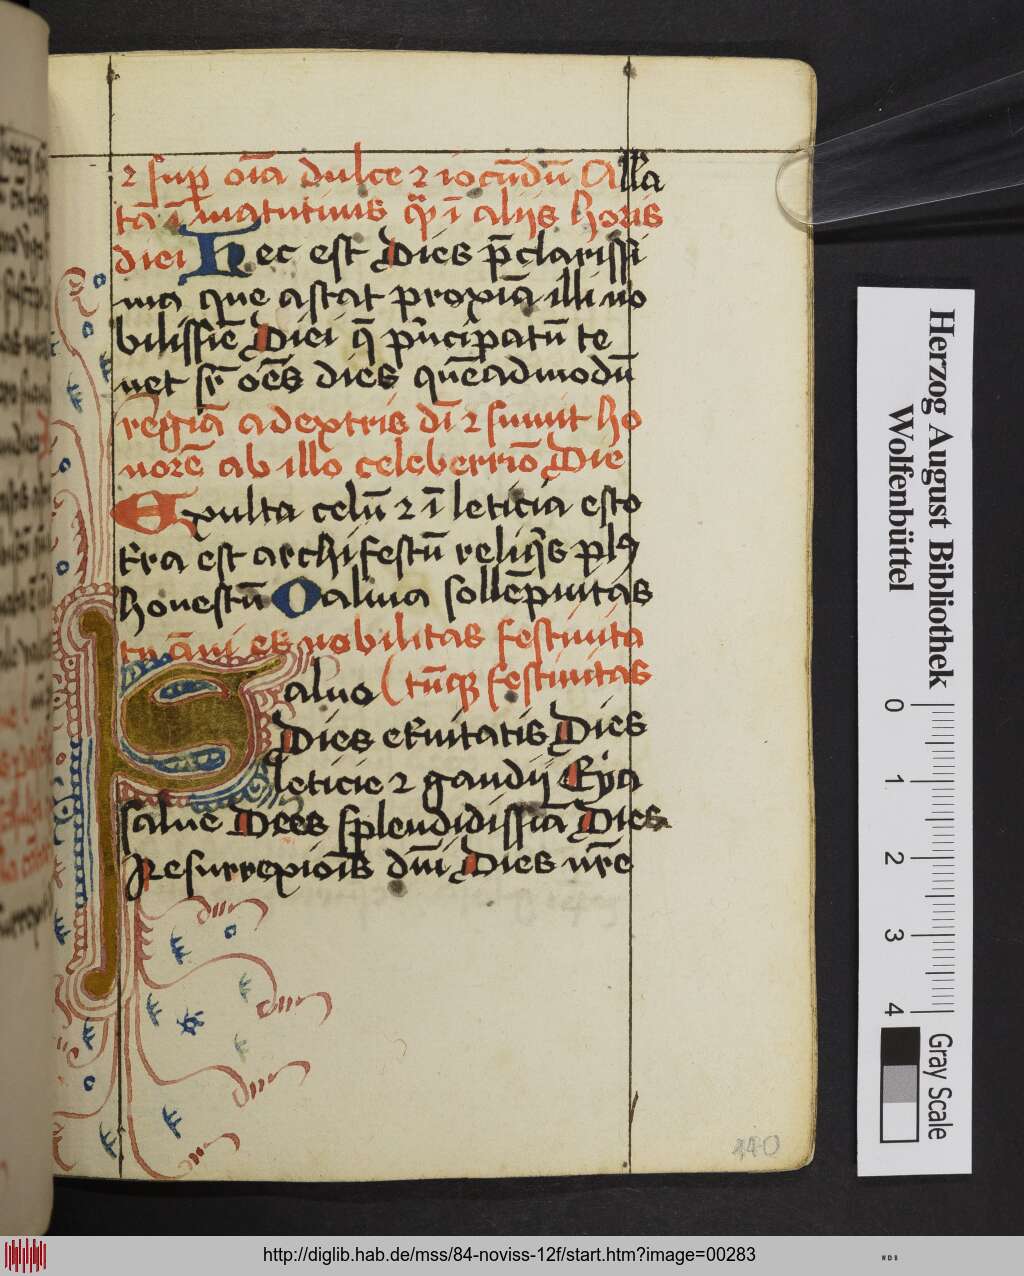 ⁊ sup̱ oīa dulce ⁊ iocūdū Alla
tā ī matutinis q̄ ī alijs horis
diei Hec est Dies p̄clarissi
ma que astat proxīa illi no
bilissīe Diei q̄ p̄ncipatū te
net sr̄ oēs dies quēadmodū
regīa adextris dī ⁊ sumit ho
norē ab illo celeberrīo Die
Exulta celū ⁊ ī leticia esto
t̄ra est archifestū reliq̄s plꝰ
honestū O alma sollēpnitas
tu āni es nobilitas festiuita
Salue (tūq̣ festiuitas
Dies et̄nitatis Dies
leticie ⁊ gaudij Eya
salue Dies splendidissīa Dies
Resurrexiōis dn̄i Dies nr̄e
140
Herzog August Bibliothek
Wolfenbüttel
0 1 2 3 4
Gray Scale
http://diglib.hab.de/mss/84-noviss-12f/start.htm?image=00283